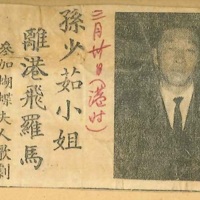 三月廿日(港时)
孫少茹小姐
離港飛羅馬
參加蝴蝶夫人歌劇